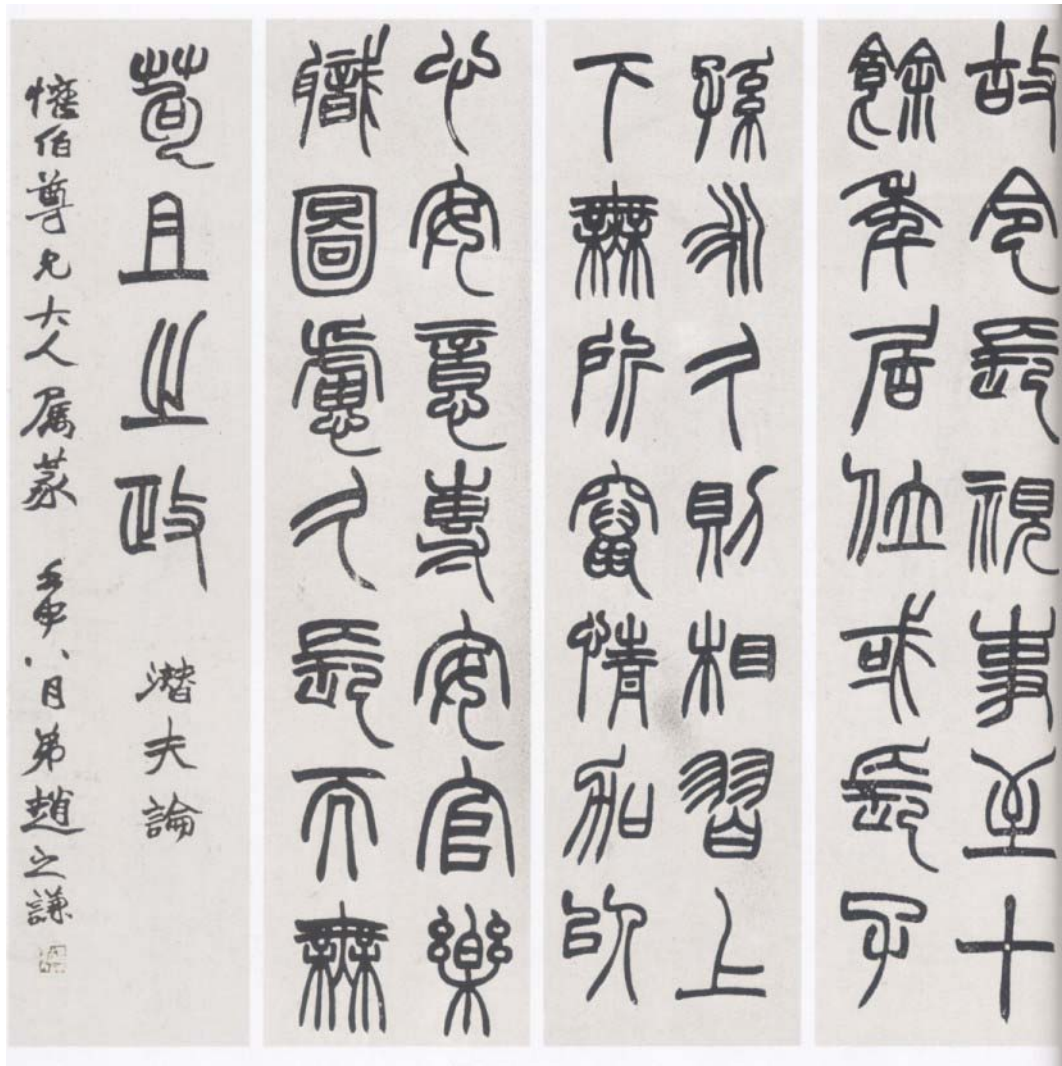 故令長視事至十
餘年居位或長子
孫永久則相習上
下無所竄情加以
心安意專安官樂
職圖慮久長而無
苟且之政 潛夫論
懽伯尊兄大人屬篆 壬申八月弟趙之謙